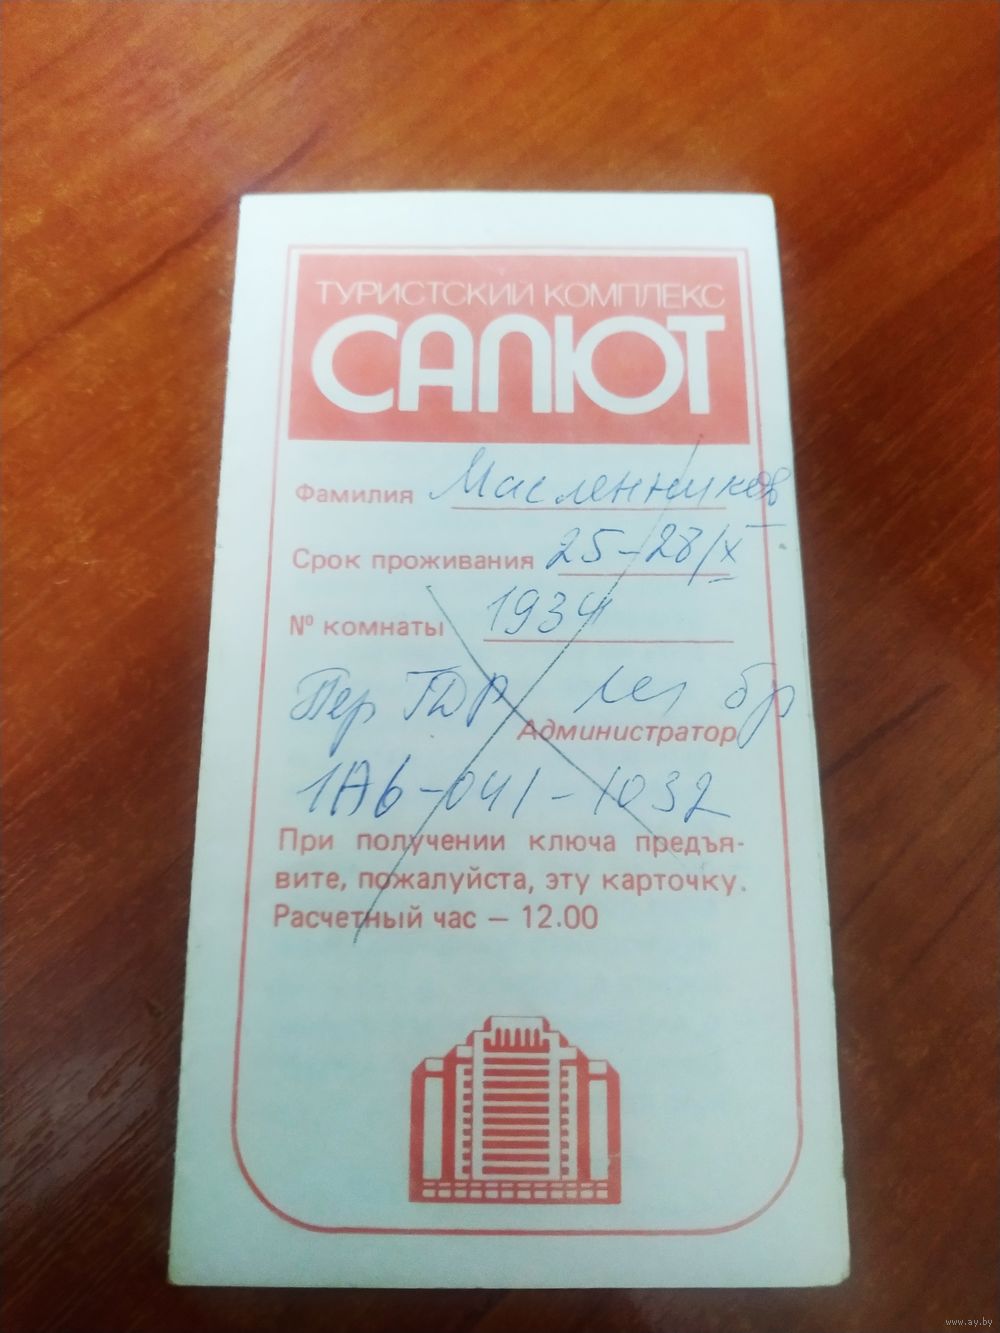 ТУРИСТСКИЙ КОМПЛЕКС
САЛЮТ
Фамилия Масленников
Срок проживания 25-28/X
№ комнаты 1934
Пер ГДР бр
Администратор
1А6-041-1032
При получении ключа предъя-
вите, пожалуйста, эту карточку.
Расчетный час – 12.00
www.ay.by